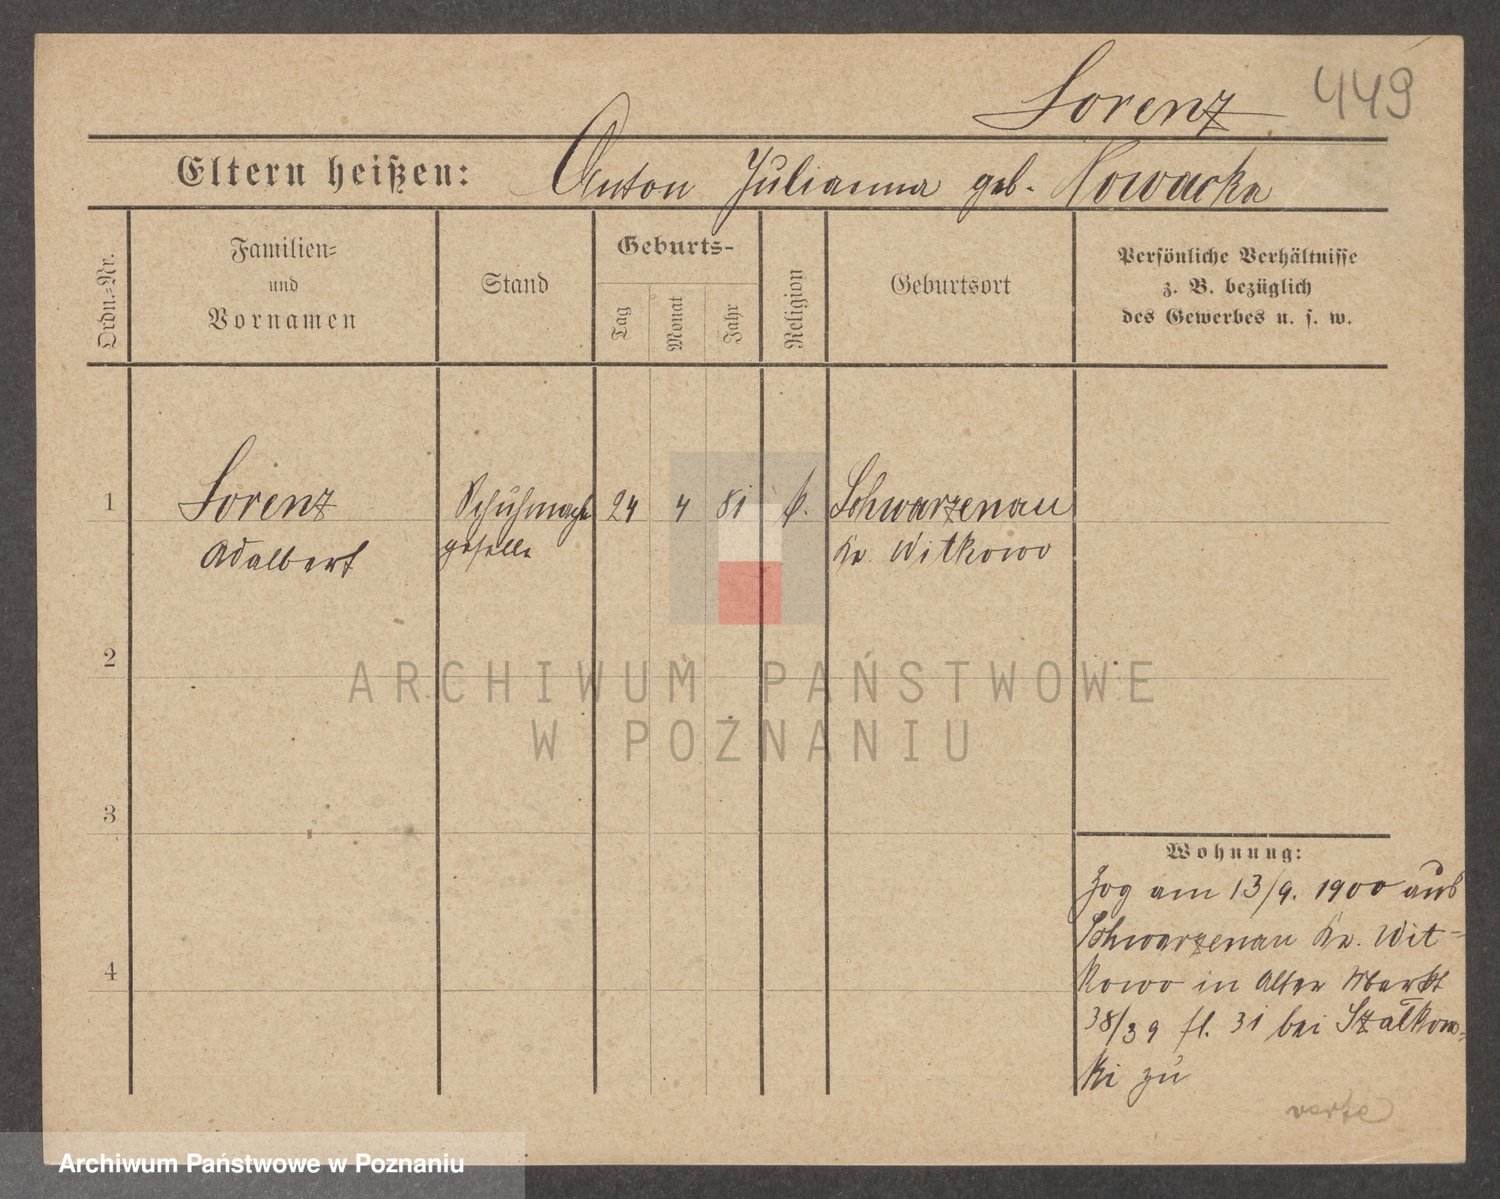 Lorenz 449
Eltern heißen: Anton Julianna geb. Nowacka
Ordn.-Nr.
Familien-
und
Vornamen
Stand
Geburts-
Tag
Monat
Jahr
Religion
Geburtsort
Persönliche Verhältnisse
z. B. bezüglich
des Gewerbes u. s. w.
1 Lorenz Schuhmach 24 4 81 k. Schwarzenau
Adalbert geselle Kr. Witkowo
2
3
4
Wohnung:
Zog am 13/9. 1900 aus
Schwarzenau Kr. Wit-
kowo in Alter Markt
38/39 fl. 31 bei Szatkow-
ki zu
verte
ARCHIWUM PAŃSTWOWE
W POZNANIU
Archiwum Państwowe w Poznaniu